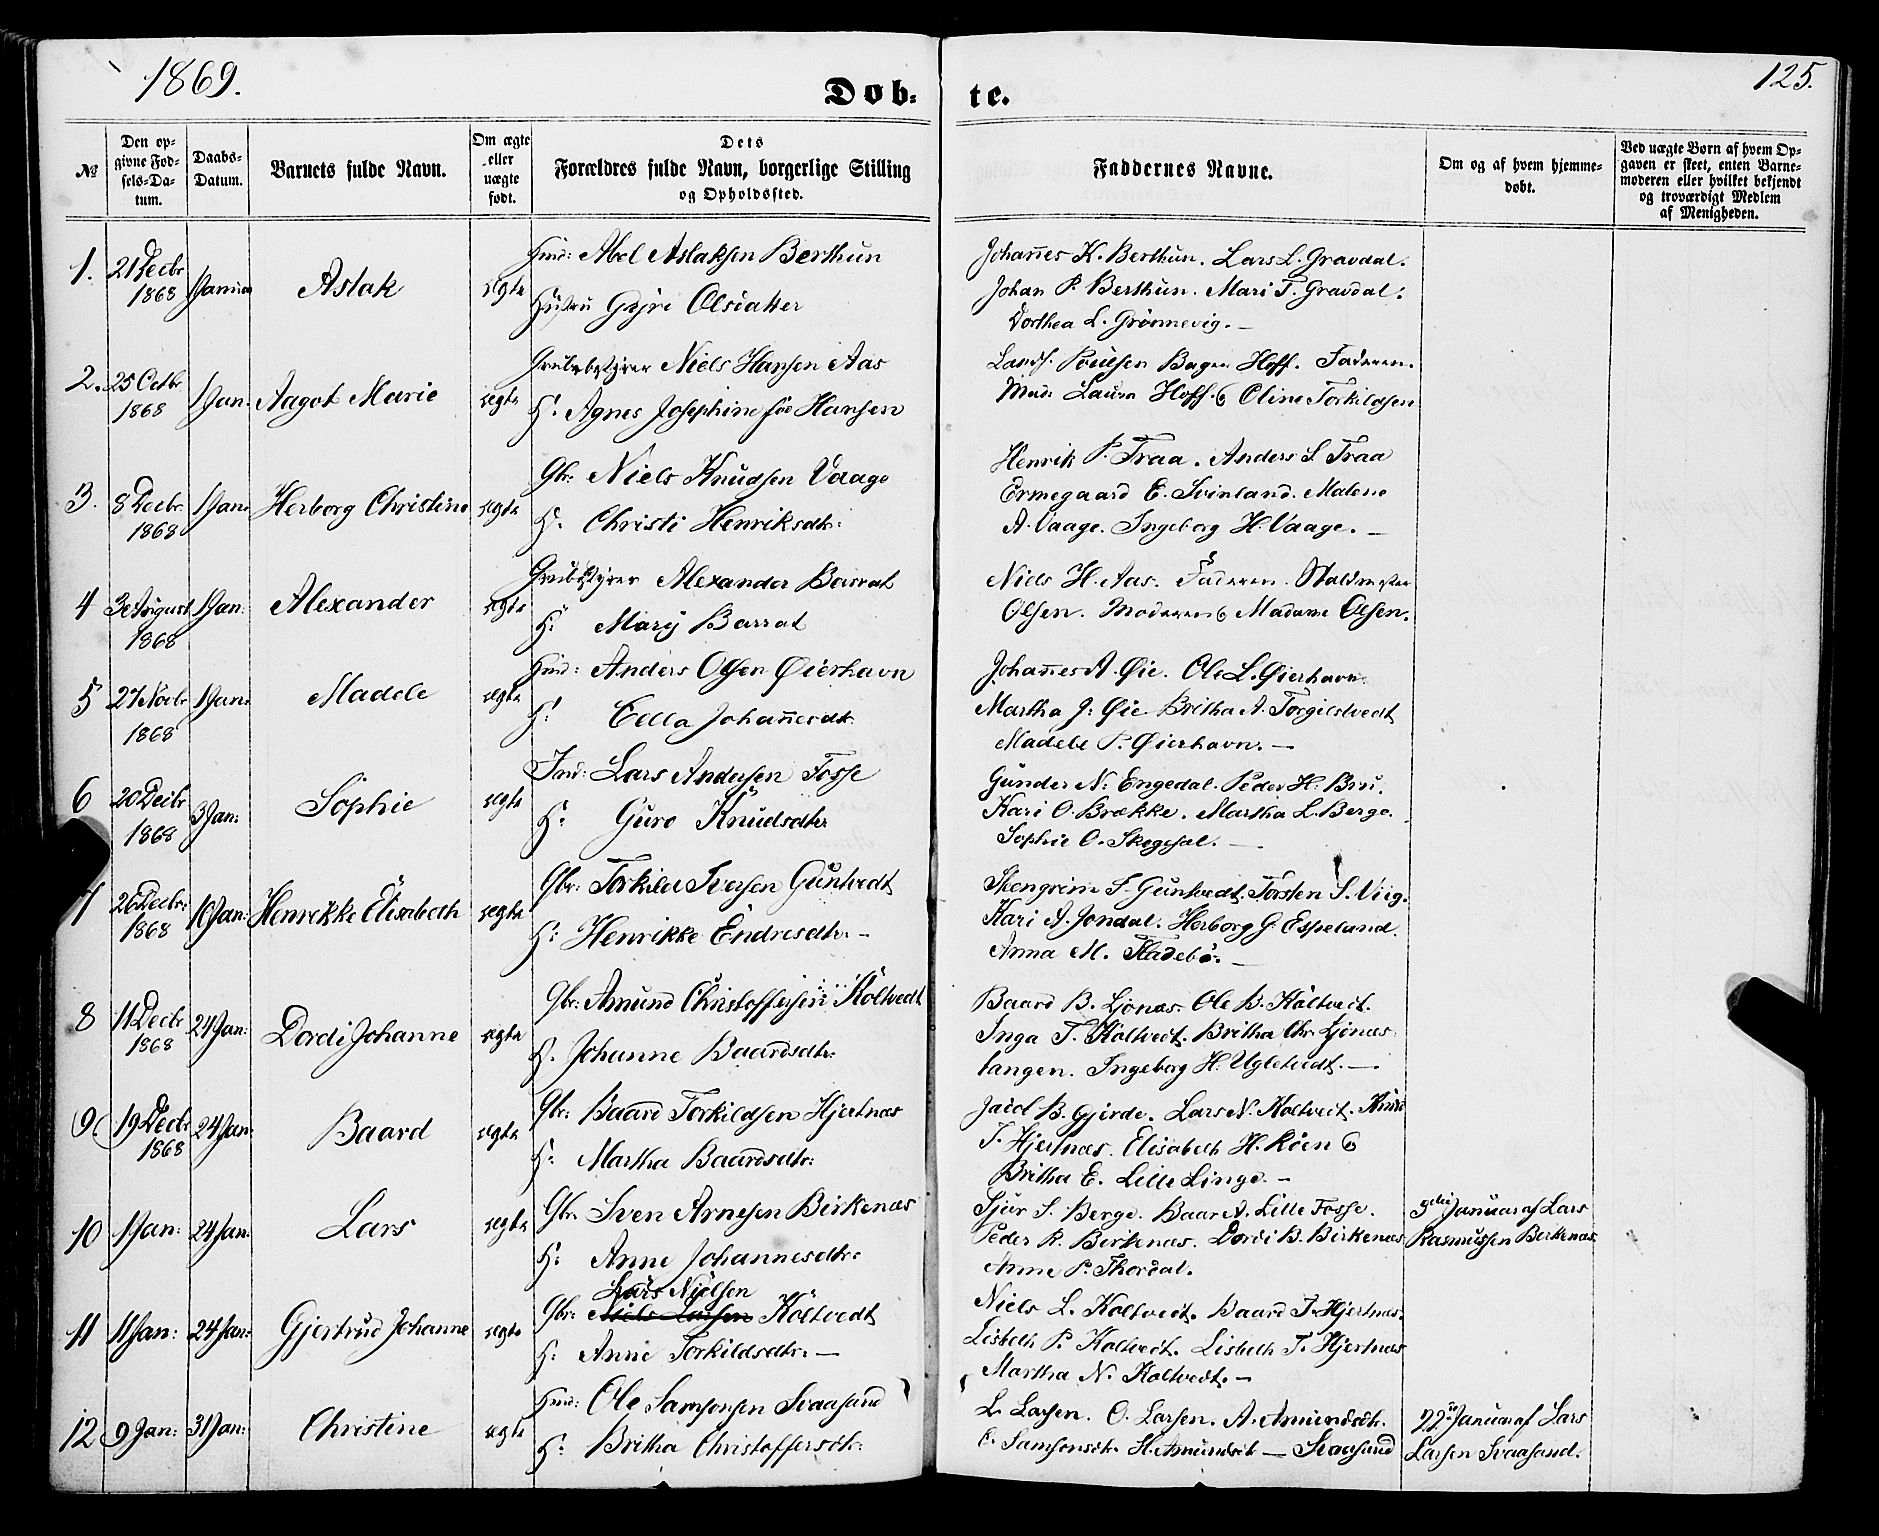 1869.
125.
Døb- te.
№
Den op-
givne Fød-
sels-Da-
tum.
Daabs-
Datum.
Barnets fulde Navn.
Om ægte
eller
uægte
født.
Dets
Forældres fulde Navn, borgerlige Stilling
og Opholdssted.
Faddernes Navne.
Om og af hvem hjemme-
døbt.
Ved uægte Børn af hvem Op-
gaven er skeet, enten Barne-
moderen eller hvilket bekjendt
og troværdigt Medlem
af Menigheden.
1. 21 Decbr 1868 1 Januar Aslak ægte
Huusm: Abel Aslaksen Berthun
Hustru Gyri Olsdatter
Johannes K. Berthun. Lars L. Gravdal.
Johan P. Berthun. Mari T. Gravdal.
Dorthea L. Grønnevig. —
2. 25 Octbr 1868 1 Jan: Aagot Marie ægte
Grubebestyrer Niels Hansen Aas
H: Agnes Josephine fød Hansen
Landh. Poulsen Bager Hoff. Faderen.
Mad: Laura Hoff. & Oline Torkildsen
3. 8 Decbr 1868 1 Jan: Herborg Christine ægte
Gbr: Niels Knudsen Vaage
H: Christi Henriksdtr:
Henrik P. Traa. Anders S. Traa
Ermegaard E. Svinland. Malene
A. Vaage. Ingeborg H. Vaage. —
4 3 August 1868 1 Jan: Alexander ægte
Grubestyrer Alexander Barrat
H: Mary Barrat
Niels H. Aas. Faderen.
Olsen. Moderen & Madame Olsen.
5 27 Novbr 1868 1 Jan: Madele ægte
Huusm: Anders Olsen Øierhavn
H: Eella Johannesdtr
Johannes A. Øie. Ole L. Øierhavn.
Martha J: Øie Britha A. Torgilstvedt
Madele P. Øierhavn. —
6 20 Decbr 1868 3 Jan: Sophie ægte
Ind: Lars Andersen Fosse
H: Guro Knudsdtr
Gunder N: Engedal. Peder H. Bru.
Kari O. Brække. Martha L. Berge.
Sophie O. Skogsal. —
7 26 Decbr: 1868 10 Jan: Henrikke Elisabeth ægte
Gbr: Torkild Iversen Guntvedt
H: Henrikke Endresdtr. —
Skengrim T. Guntvedt. Torsten S. Viig.
Kari A. Jondal. Herborg G. Espeland.
Anna M. Fladebø. —
8 11 Decbr 1868 24 Jan: Dordi Johanne ægte
Gbr: Amund Christoffersen Koltvedt
H. Johanne Baardsdtr:
Baard B. Ljonæs. Ole B. Koltvedt.
Inga T. Koltvedt. Britha Chr. Ljonæs-
tangen. Ingeborg H. Ugletvedt. —
9. 19 Decbr 1868 24 Jan: Baard ægte
Gbr: Baard Torkildsen Hjertnæs
H: Martha Baardsdtr:
Jacob B. Gjerde. Lars N. Koltvedt. Knud
T. Hjertnæs. Elisabeth H. Røen &
Britha E. Lille Linge. —
10 1 Jan: 24 Jan: Lars ægte
Gbr. Sven Arnesen Birkenæs
H: Anne Johannesdtr:
Sjur S. Berge. Baar A. Lille Fosse.
Peder R. Birkenæs. Dordi B. Birkenæs
Anne P. Thordal.
Januar af Lars
Rasmussen Berkenæs.
11 11 Jan: 24 Jan: Gjertrud Johanne ægte
Lars Nielsen
Gbr: Niels Larsen Koltvedt
H: Anne Torkildsdtr: —
Niels L. Koltvedt. Baard T. Hjertnæs.
Lisbeth P. Koltvedt. Lisbeth T. Hjertnæs
Martha N. Koltvedt. —
12 9 Jan: 31 Jan: Christine ægte
Huusm: Ole Samsonsen Svaasand
H: Britha Christoffersdtr:
L. Larsen. O. Larsen. A. Amundsdtr.
Samsonsdtr. H. Amundsdtr — Svaasand
Januar af Lars
Larsen Svaasand.